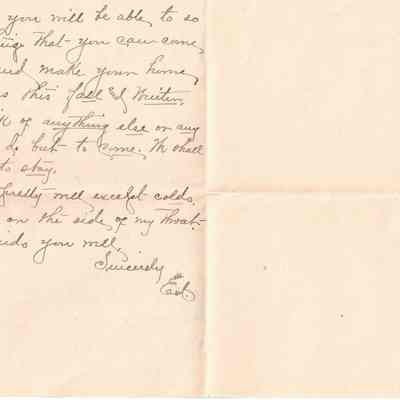 you will be able, to so
that you can come,
make your home,
this fall & Winter,
of anything else or any
but to come. We shall
to stay.
pretty well except colds,
on the side of my throat.
you well,
Sincerely